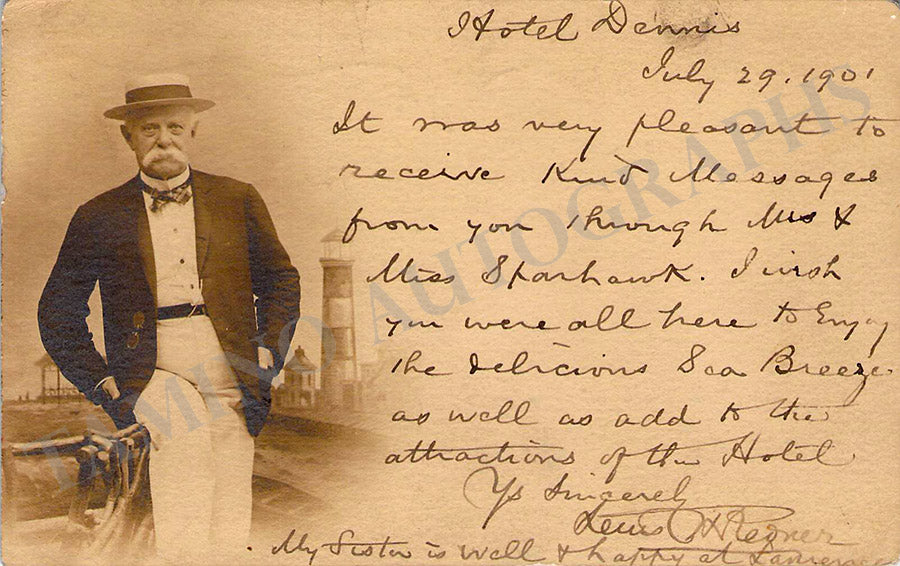 Hotel Dennis
July 29. 1901
It was very pleasant to
receive Kind Messages
from you through Mrs &
Miss Sparhawk. I wish
you were all here to Enjoy
the delicious Sea Breeze
as well as add to the
attractions of the Hotel
Ys Sincerely
Lewis H
My Sister is well & happy at
DIMINO AUTOGRAPHS